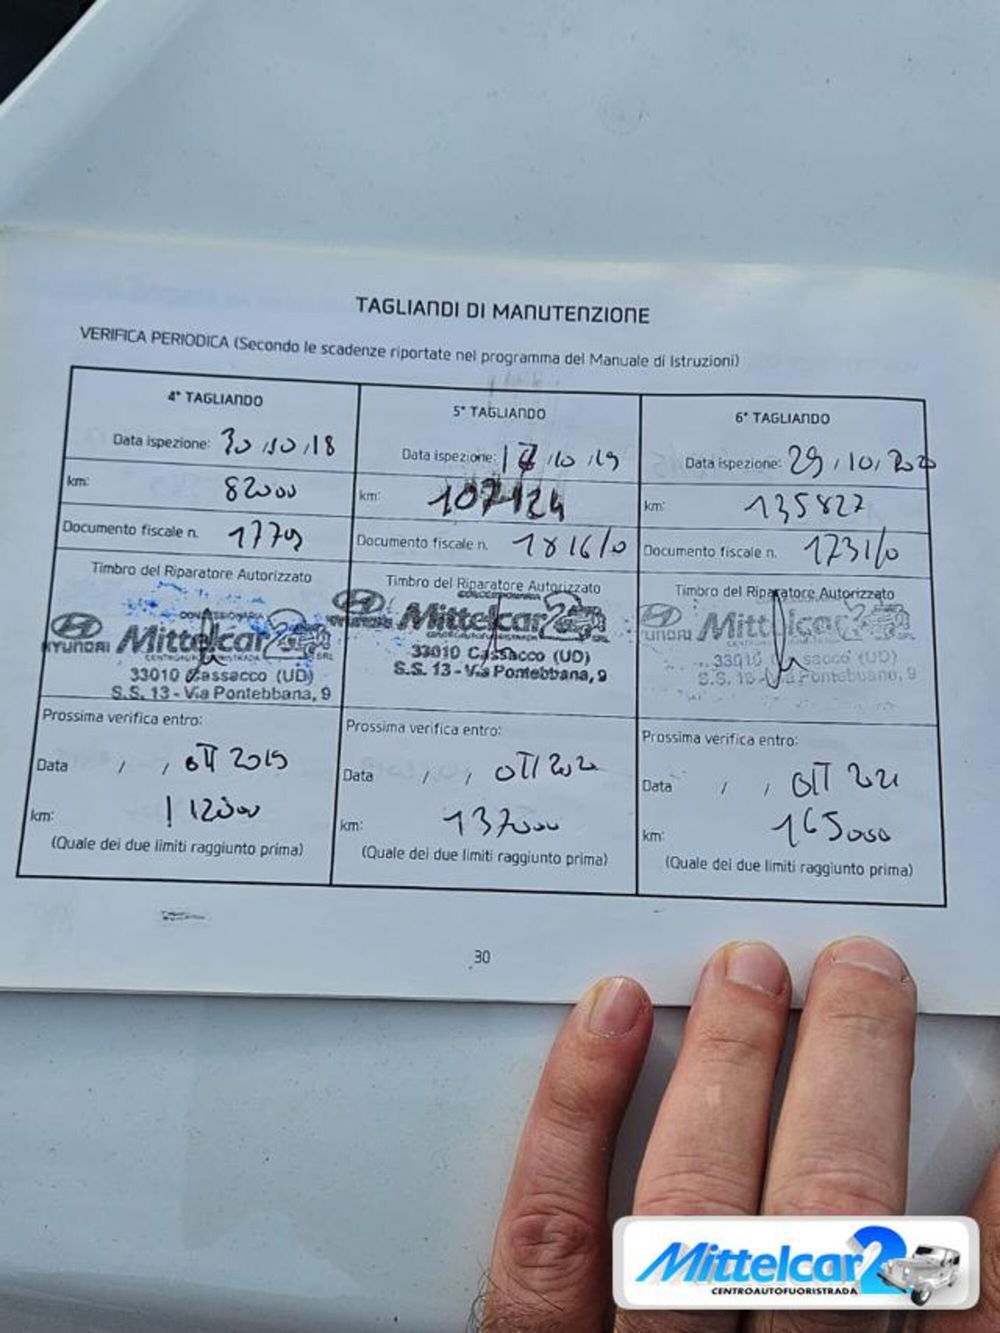 TAGLIANDI DI MANUTENZIONE
VERIFICA PERIODICA (Secondo le scadenze riportate nel programma del Manuale di Istruzioni)
4° TAGLIANDO
Data ispezione: 30/10/18
km: 82000
Documento fiscale n. 1779
Timbro del Riparatore Autorizzato
CONCESSIONARIA
HYUNDAI Mittelcar2 SRL
CENTROAUTOFUORISTRADA
33010 Cassacco (UD)
S.S. 13 - Via Pontebbana, 9
Prossima verifica entro:
Data / / OTT 2019
km: 112000
(Quale dei due limiti raggiunto prima)
5° TAGLIANDO
Data ispezione: 17/10/19
km: 107124
Documento fiscale n. 1816/0
Timbro del Riparatore Autorizzato
CONCESSIONARIA
HYUNDAI Mittelcar2 SRL
CENTROAUTOFUORISTRADA
33010 Cassacco (UD)
S.S. 13 - Via Pontebbana, 9
Prossima verifica entro:
Data / / OTT 2020
km: 137000
(Quale dei due limiti raggiunto prima)
6° TAGLIANDO
Data ispezione: 29/10/2020
km: 135827
Documento fiscale n. 1731/0
Timbro del Riparatore Autorizzato
HYUNDAI Mittelcar2 SRL
33010 Cassacco (UD)
S.S. 13 - Via Pontebbana, 9
Prossima verifica entro:
Data / / OTT 2021
km: 165000
(Quale dei due limiti raggiunto prima)
30
Mittelcar2
CENTROAUTOFUORISTRADA